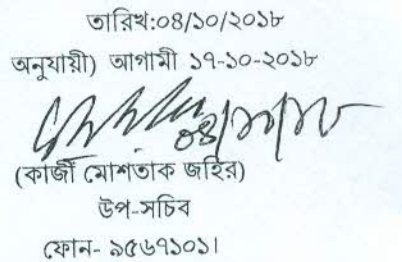 তারিখ:০৪/১০/২০১৮
অনুযায়ী) আগামী ১৭-১০-২০১৮
০৪/১০/১৮
(কাজী মোশতাক জহির)
উপ-সচিব
ফোন- ৯৫৬৭১০১।